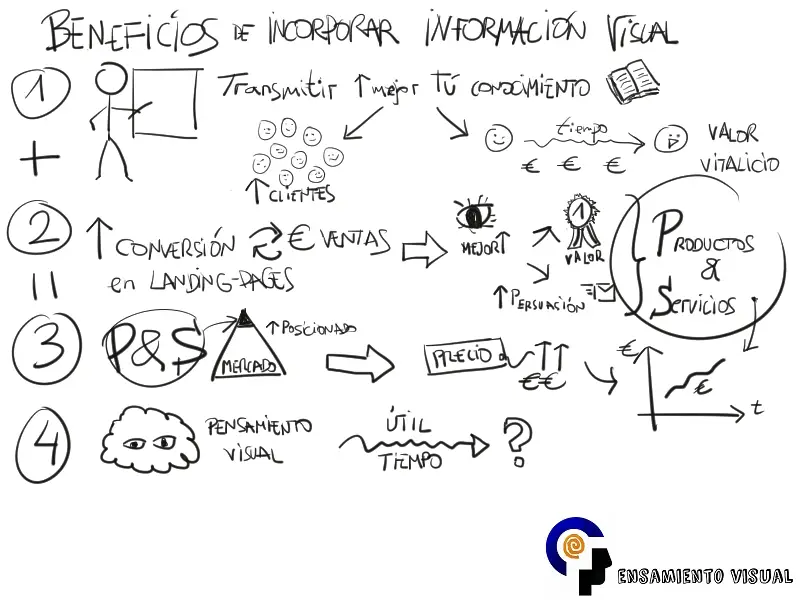 BENEFICIOS DE INCORPORAR INFORMACIÓN VISUAL
1 Transmitir ↑ mejor TÚ CONOCIMIENTO
+
tiempo
€ € €
VALOR
VITALICIO
↑ CLIENTES
2 ↑ CONVERSIÓN € VENTAS
en LANDING-PAGES
MEJOR↑
1
VALOR
↑ PERSUACIÓN
PRODUCTOS
&
SERVICIOS
=
3 P&S
MERCADO
↑ POSICIONADO
PRECIO ↑↑
€€
€
€
t
4 PENSAMIENTO
VISUAL
ÚTIL
TIEMPO
?
PENSAMIENTO VISUAL